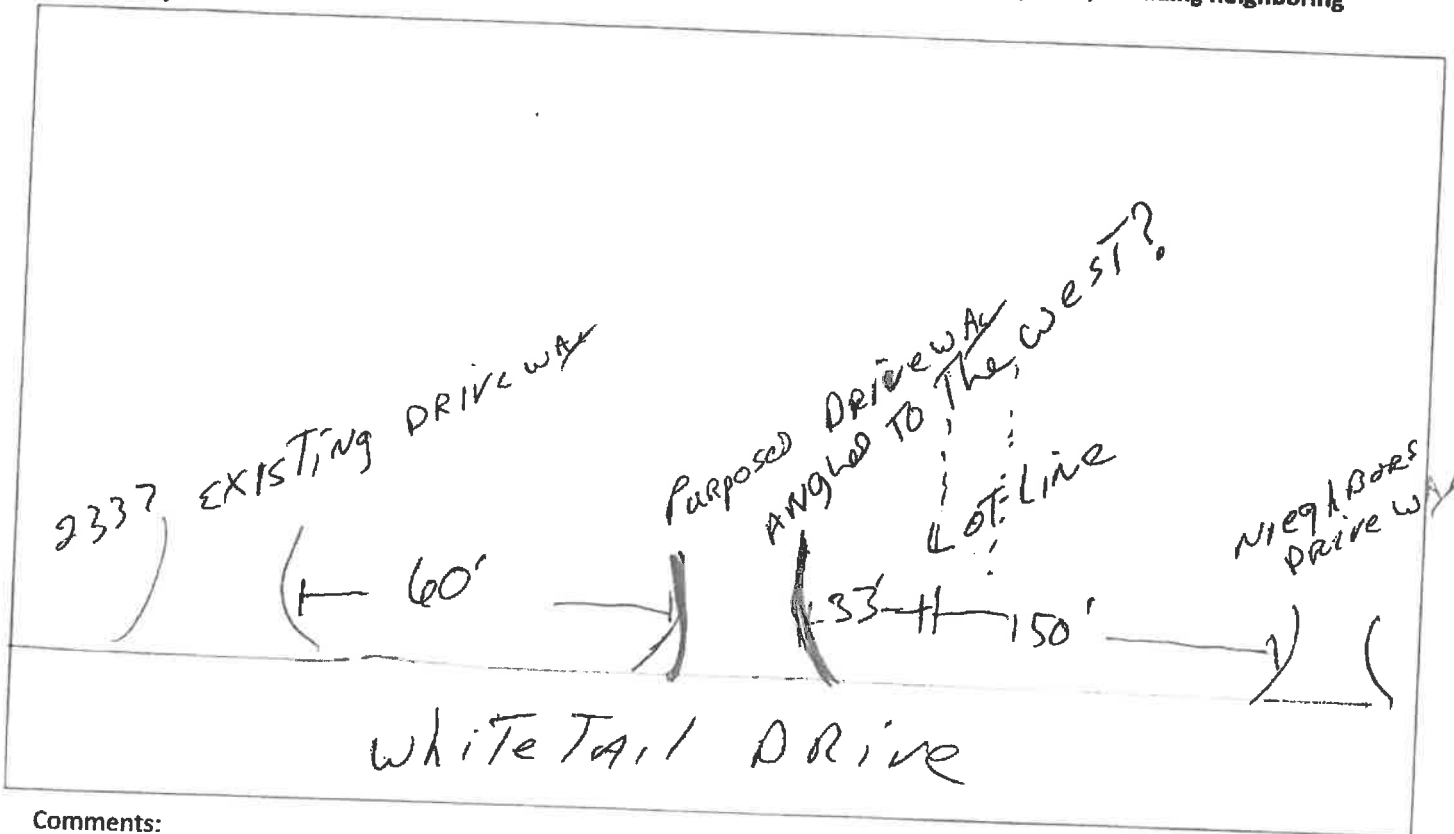 ding neighboring
2337 EXISTING DRIVEWAY
Purposed DRiveWAy
ANgled To The west?
LOT LiNe
NieghBors
DRive WAy
60'
33'
150'
whiTe TAil DRive
Comments: